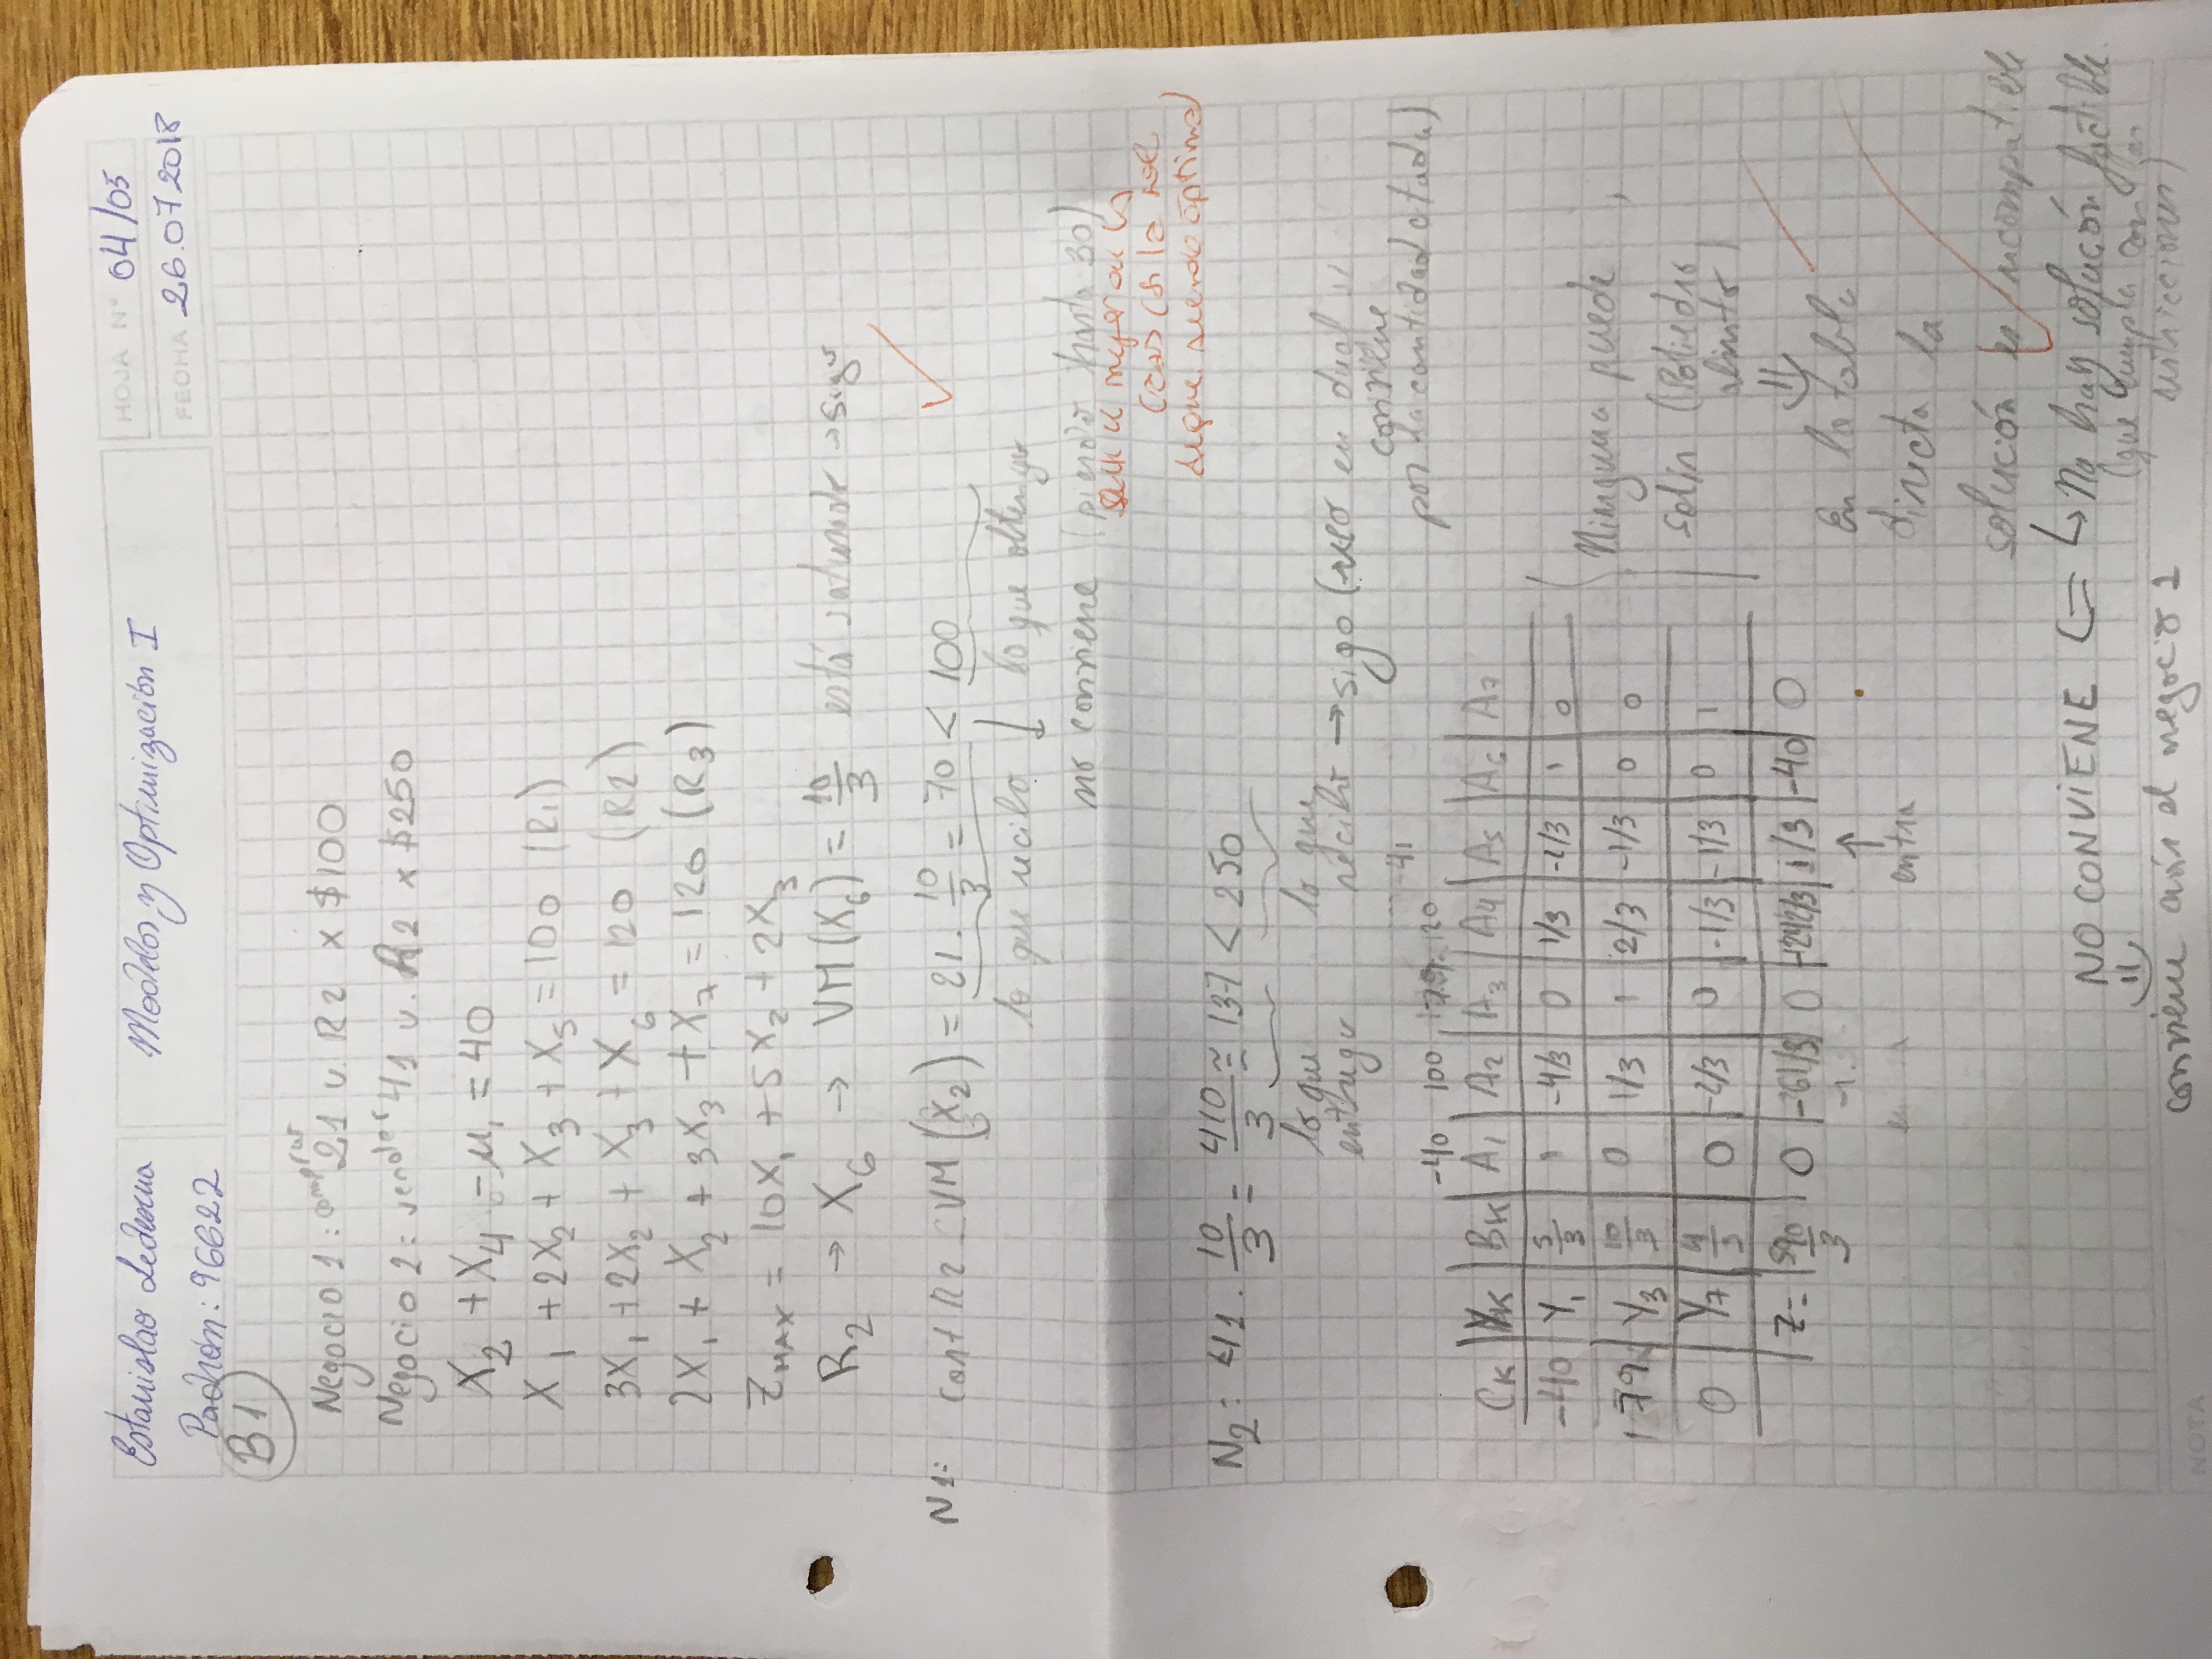 Estanislao Ledesma
Padrón: 96622
Modelos y Optimización I
HOJA N° 04/05
FECHA 26.07.2018
B1
Negocio 1: comprar 21 u. R2 x $100
Negocio 2: vender 41 u. R2 x $250
X2 + X4 - μ1 = 40
X1 + 2X2 + X3 + X5 = 100 (R1)
3X1 + 2X2 + X3 + X6 = 120 (R2)
2X1 + X2 + 3X3 + X7 = 120 (R3)
ZMAX = 10X1 + 5X2 + 2X3
R2 → X6 → VM(X6) = 10/3 está saturado → sigo
N1: VM (X2) = 21 . 10/3 = 70 < 100
lo que recibo lo que obtengo
no conviene (pierdo hasta 30)
sigue siendo óptima)
N2: 41 . 10/3 = 410/3 ≃ 137 < 250
lo que entrego
lo que recibo
→ sigo (veo en dual si conviene
por la cantidad actuada)
-40 100 120 -41
CK | YK | BK | A1 | A2 | A3 | A4 | A5 | A6 | A7
-40 | Y1 | 5/3 | 1 | -4/3 | 0 | 1/3 | -1/3 | 1 | 0
179 | Y3 | 10/3 | 0 | 1/3 | 1 | 2/3 | -1/3 | 0 | 0
0 | Y7 | 4/3 | 0 | -4/3 | 0 | -1/3 | -1/3 | 0 | 1
Z= | 0 | -61/3 | 0 | 1/3 | -40 | 0
↑
entra
Ninguna puede
salir (Poliedro
abierto)
⇓
En la tabla
directa la
solución es incompatible
↳ No hay solución factible
(que cumpla con las
restricciones)
NO CONVIENE ⇐
⇓
conviene aún el negocio 1
NOTA